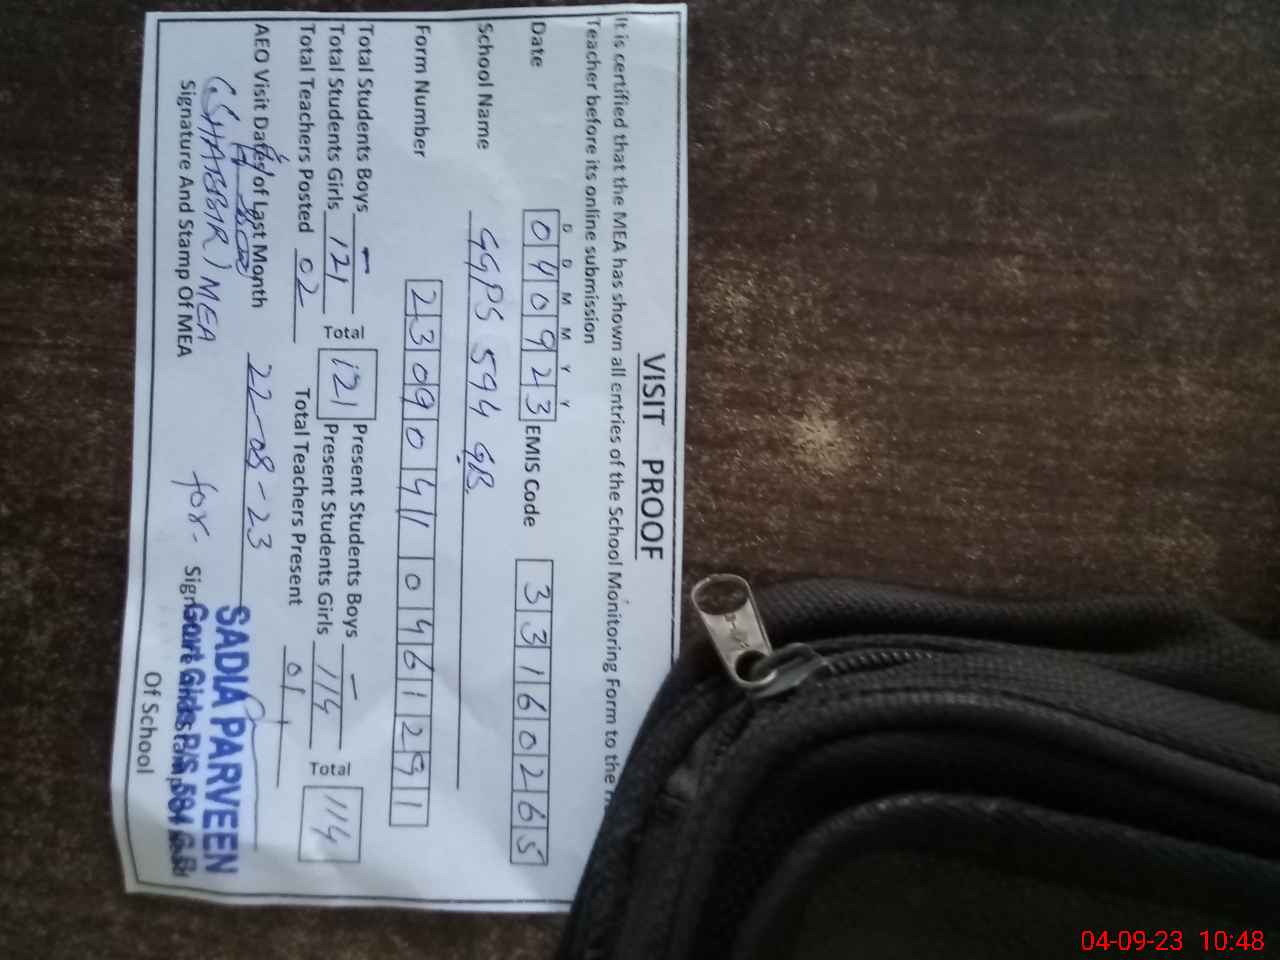 VISIT PROOF
It is certified that the MEA has shown all entries of the School Monitoring Form to the
Teacher before its online submission
D D M M Y Y
Date 040923 EMIS Code 33160265
School Name GGPS 594 GB.
Form Number 2309041 04612 91
Total Students Boys - Present Students Boys -
Total Students Girls 121 Total 121 Present Students Girls 114 Total 114
Total Teachers Posted 02 Total Teachers Present 01
AEO Visit Dates of Last Month 22-08-23
(SHABBIR) MEA for-
SADIA PARVEEN
Signature And Stamp Of MEA
Govt Girls P/S 594 G.B
Of School
04-09-23 10:48